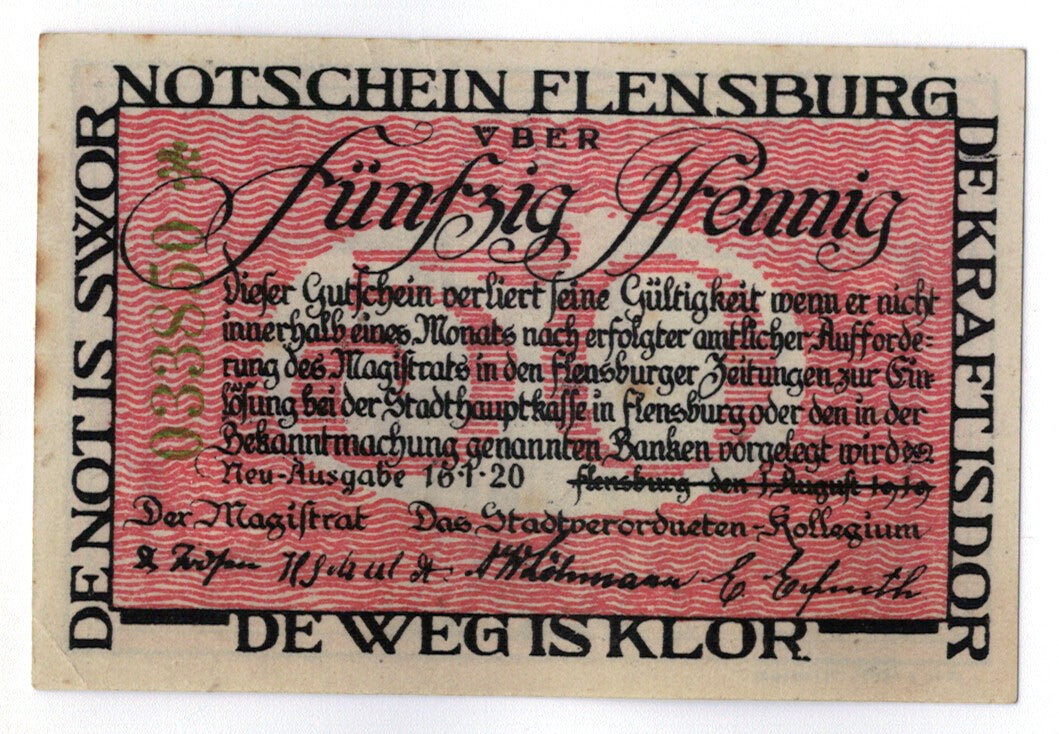 NOTSCHEIN FLENSBURG
DE NOT IS SWOR
DE KRAFT IS DOR
ÜBER
Fünfzig Pfennig
50
033850 *
Dieser Gutschein verliert seine Gültigkeit wenn er nicht
innerhalb eines Monats nach erfolgter amtlicher Aufforde=
rung des Magistrats in den Flensburger Zeitungen zur Ein=
lösung bei der Stadthauptkasse in Flensburg oder den in der
Bekanntmachung genannten Banken vorgelegt wird
Neu-Ausgabe 16·1·20 Flensburg den 1. August 1919
Der Magistrat Das Stadtverordneten-Kollegium
DE WEG IS KLOR